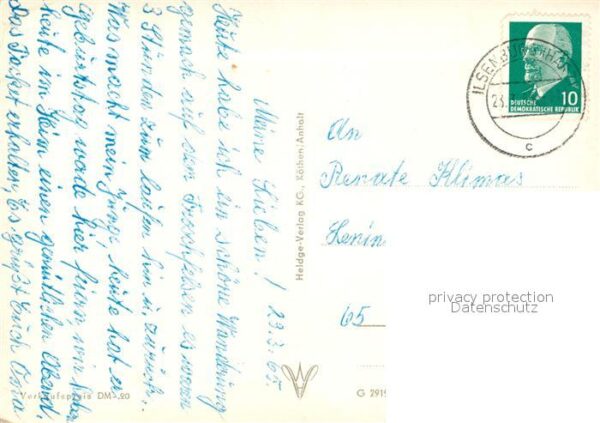 Meine Lieben! 23.3.65.
Heute habe ich ein schöne Wanderung
gemach auf den Froschfelsen es waren
3 Stunden zum laufen hin u. zurück.
Was macht mein Junge heute hat er
geburtstag wurde hier feiern wir haben
heute im Heim einen gemütlichen Abend,
das Packet erhalten, Es grüßt Euch Oma
Verkaufspreis DM -,20
Heldge-Verlag KG., Köthen/Anhalt
G 2919
ILSENBURG (HARZ)
23.3.
c
DEUTSCHE
DEMOKRATISCHE REPUBLIK
10
An
Renate Klimas
Henin
65
privacy protection
Datenschutz